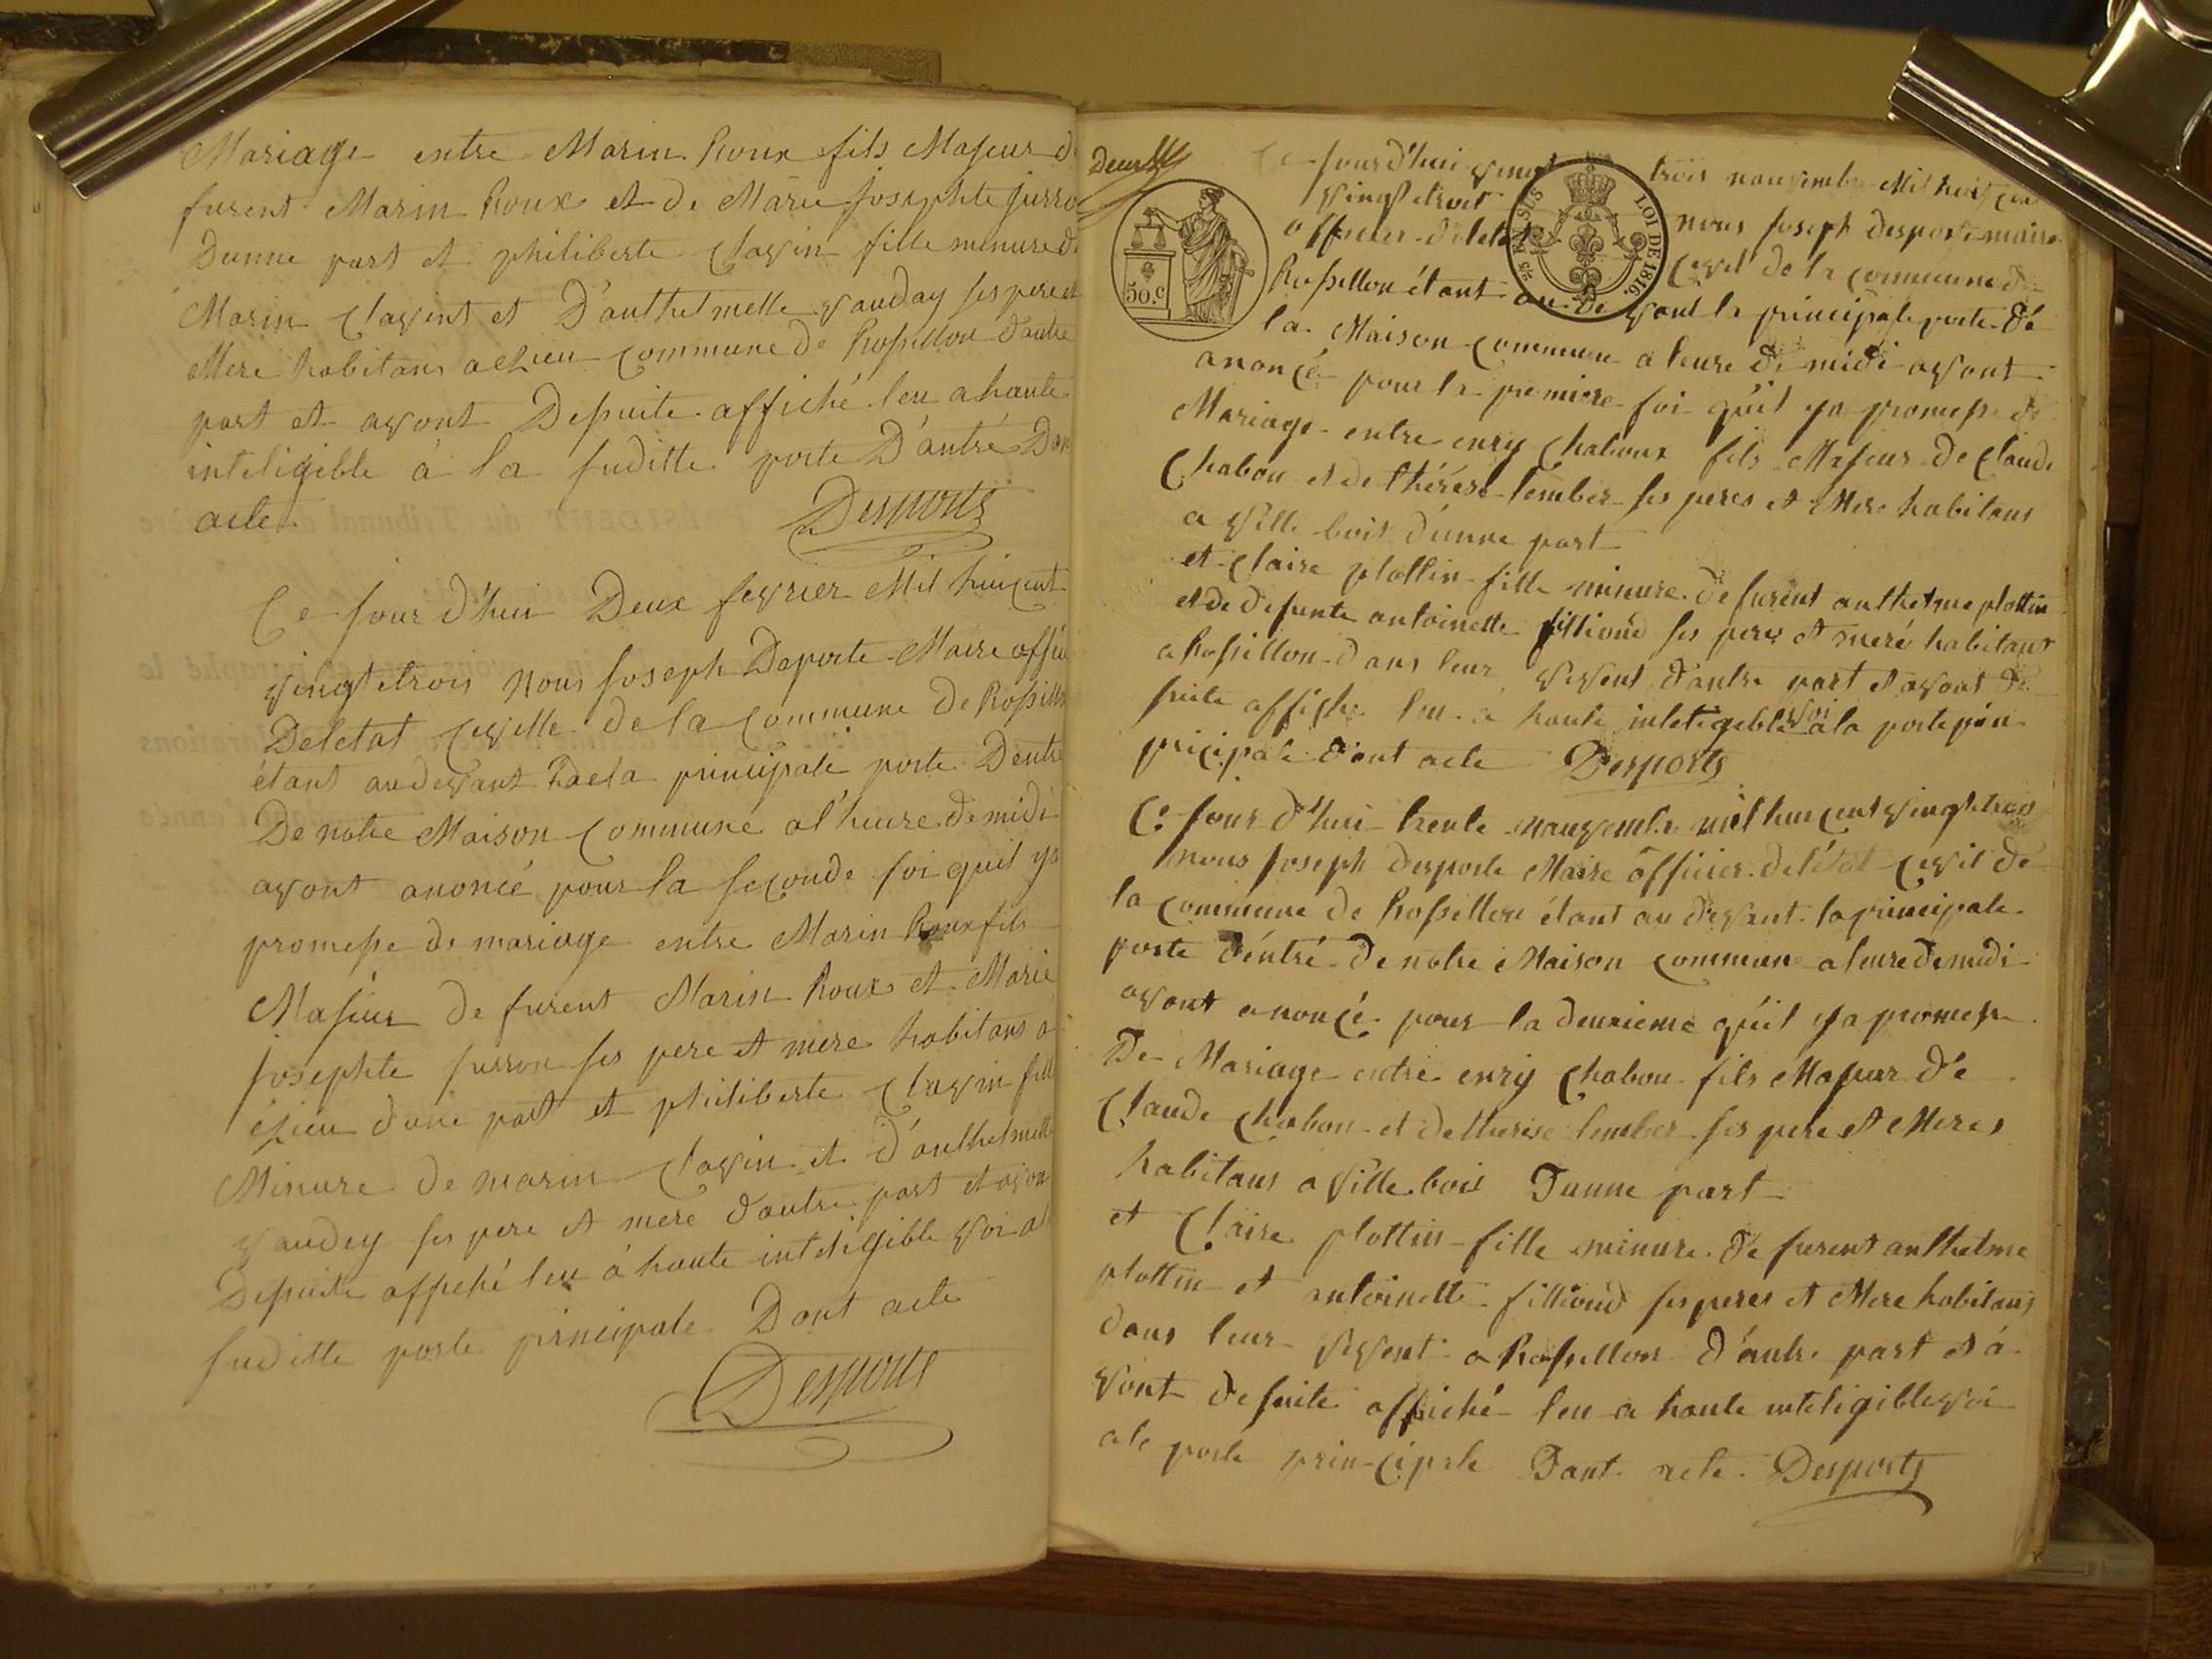 Mariage entre Marin Roux fils Majeur d
furent Marin Roux et de Marie josephte jurro
Dunne part et philiberte Clavin fille minure d
Marin Clavent et D'anthelmette vauday ses pere et
Mere habitans a commune de Rossillon d'autre
part et ayont Desuite affiché leu a haute
inteligible á la suditte porte D'autré Don
acte
Desports
Ce jour d'hui Deux fevrier Mil huicent
vingtetrois Nous joseph Deporte Maire offici
Deletat Ceville de la Commune de Rossillo
étant au devant de la principale porte Dentre
De notre Maison Commune al'heure de midi
ayont anoncé pour la seconde foi quil ya
promesse de mariage entre Marin Roux fils
Majeur de furent Marin Roux et Marie
josephte jurron ses pere et mere habitans a
d'une part et philiberte Clavin fille
Minure de marin Clavin et d'anthelmette
vaudey ses pere et mere d'autre part et ayon
Desuite affiché leu á haute inteligible voi a l
suditte porte principale Dont acte
Desports
Ce jourd'hui vingt trois nauvembre Mil huit cent
vingtetroit nous joseph desporte maire
officier de letat Cevil de la commune de
Rossillon étant au de vant la principale porte d'é
la Maison commun a leure de midi ayont
anoncé pour la premiere foi qu'il ya promesse de
Mariage entre enry Chaboux fils Majeur de Claude
Chabou et de thérése lember ses peres et Mere habitans
a ville bois d'unne part
et Claire plottin fille minure de furent anthelme plottin
et de defunte antoinette fillioud ses pere et meré habitant
a Rossillon dans leur vivent d'autre part et ayont de
suite affiche leu a haute inteligible voi a la porte prin
pricipale dont acte Desports
Ce jour d'hui trente nauvembre mil huicent vingtetrois
nous joseph desporte Maire officier de l'état Cevil de
la Commune de Rossillon étant au devant la principale
porte d'éntré de notre Maison commun a leure de midi
ayont anoncé pour la deuxieme qu'il ya promesse
De Mariage entré enry Chabou fils Majeur de
Claude Chabou et de therese lember ses pere et Meres
habitans a ville bois Dunne part
et Claire plottin fille minure de furent anthelme
plottin et antoinette fillioud ses peres et Mere habitans
dans leur vivent a Rossillon d'autre part et a
vont de suite affiché leu a haute inteligible voi
a la porte prin-cipale Dont acte Desports
50.c
LOI DE 1816.